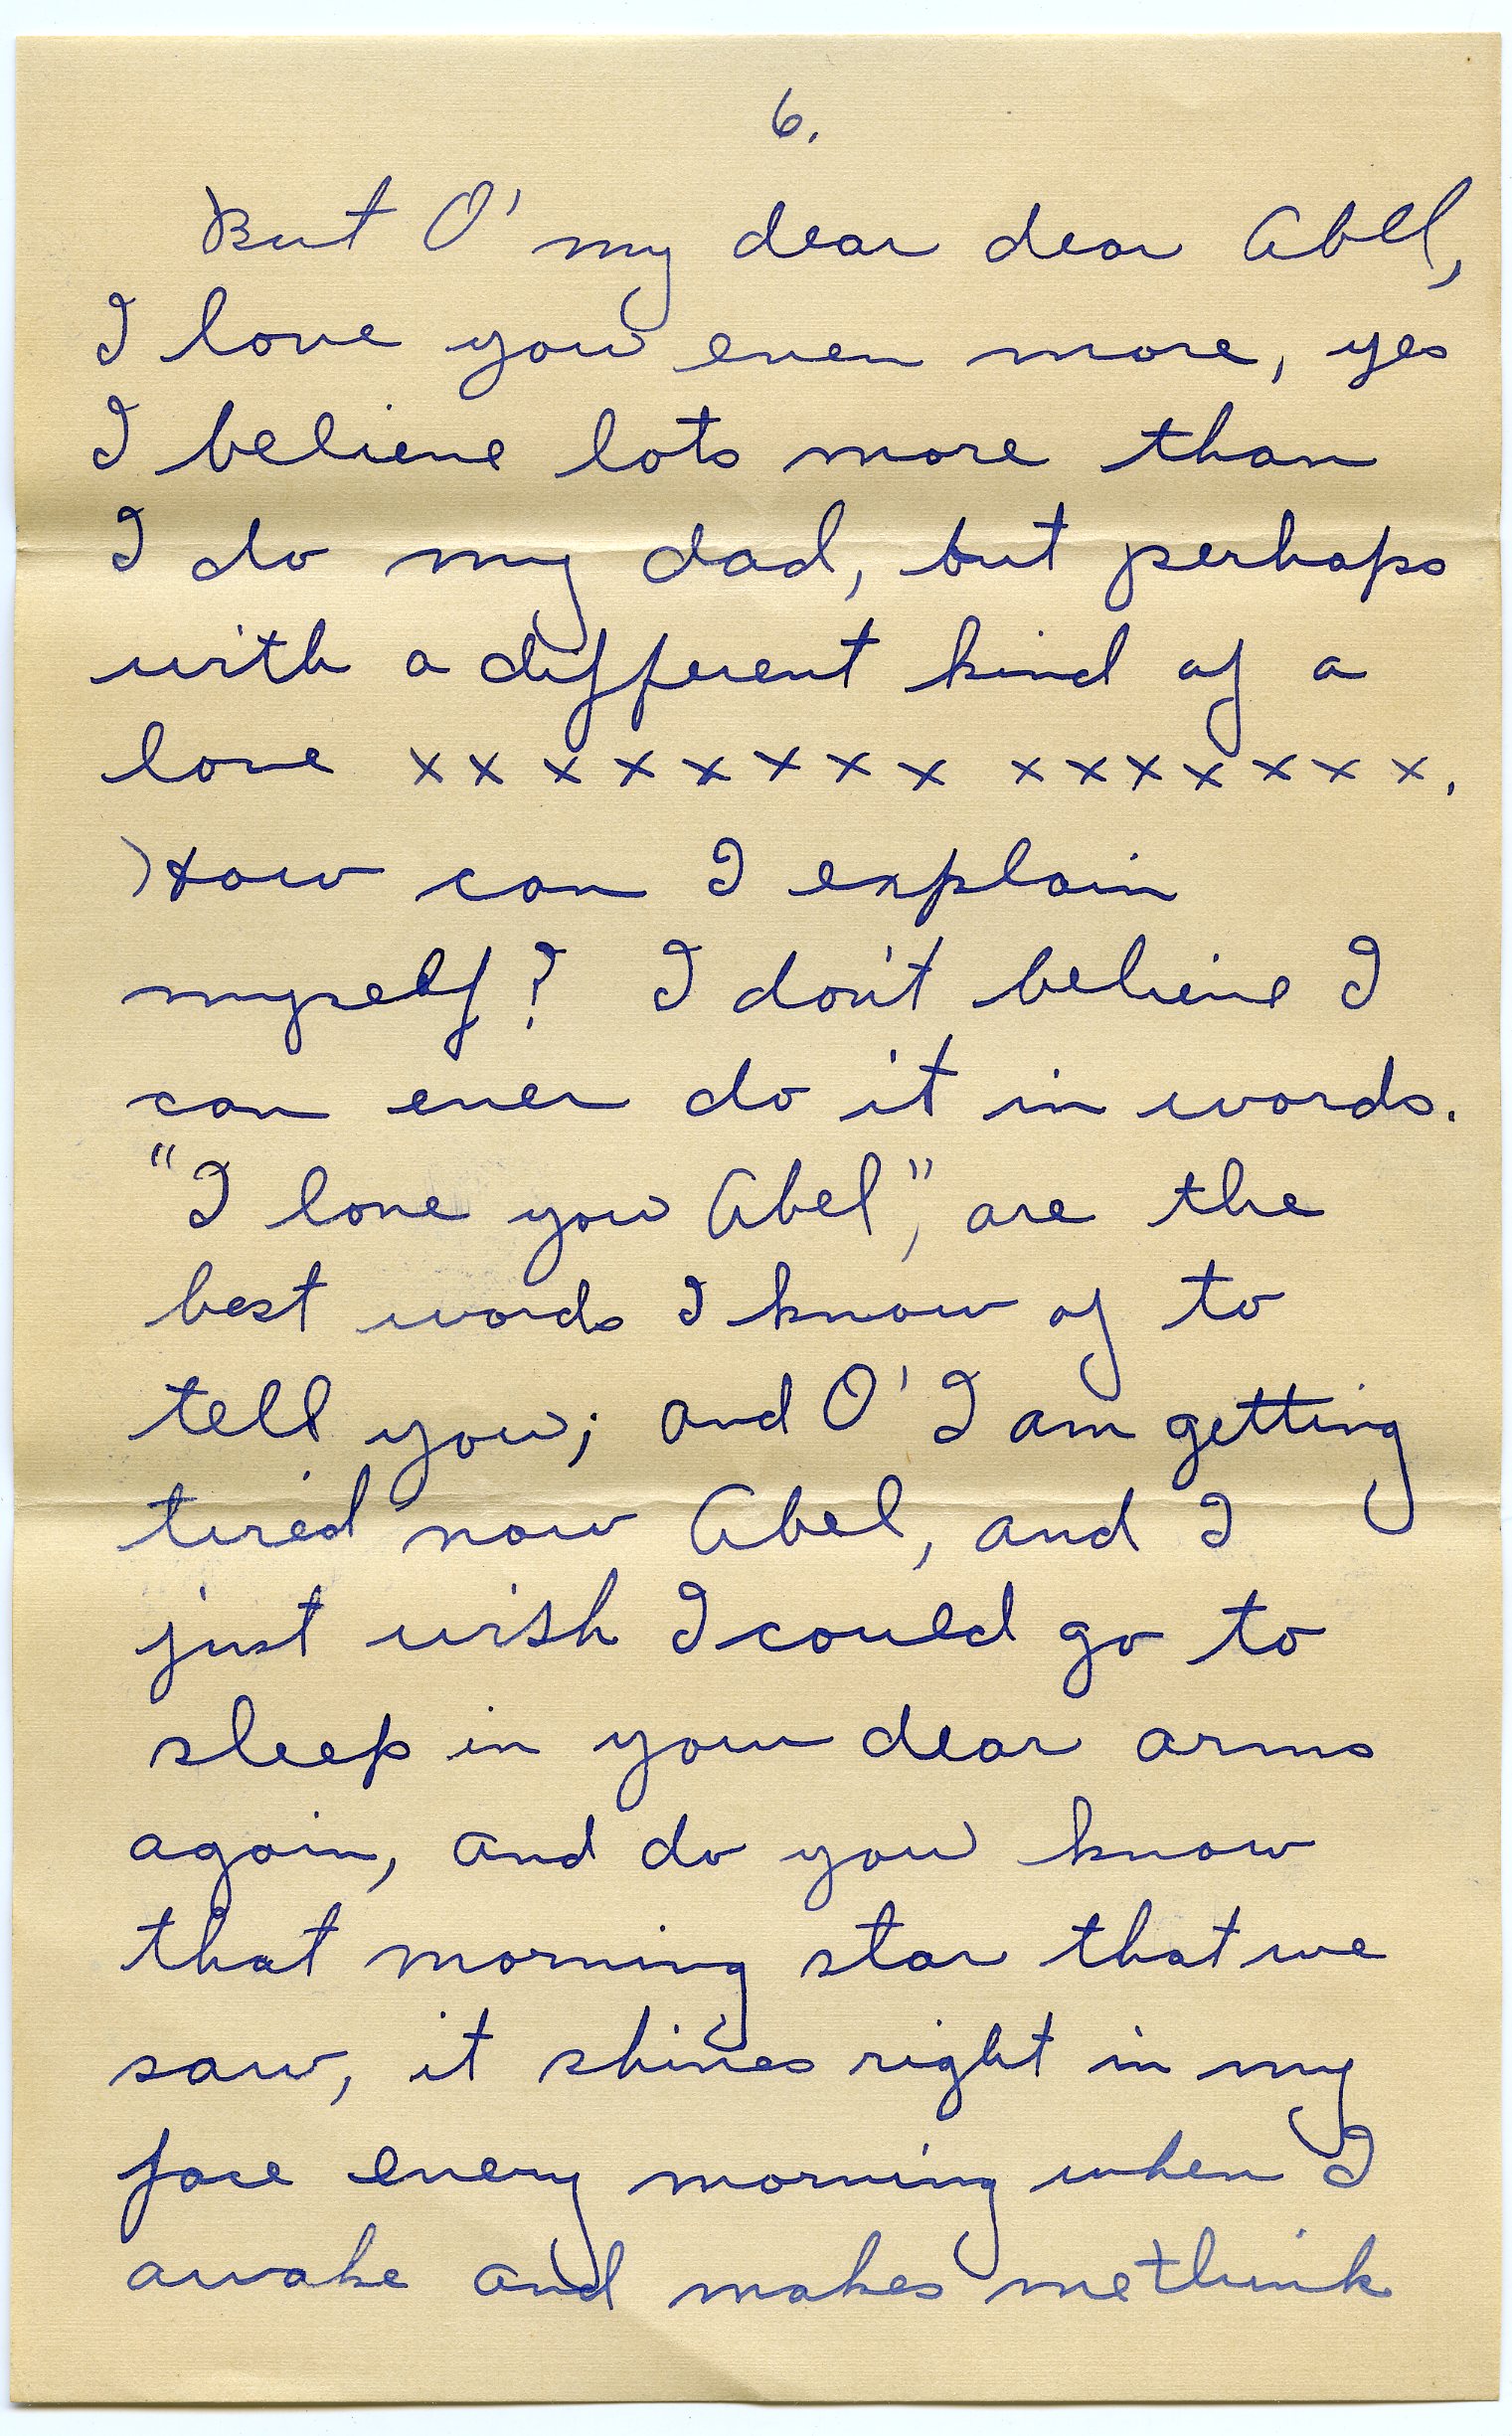 6.
But O' my dear dear Abel,
I love you even more, yes
I believe lots more than
I do my dad, but perhaps
with a different kind of a
love x x x x x x x x x x x x x x x.
How can I explain
myself? I don't believe I
can ever do it in words.
"I love you Abel", are the
best words I know of to
tell you; and O' I am getting
tired now Abel, and I
just wish I could go to
sleep in your dear arms
again, and do you know
that morning star that we
saw, it shines right in my
face every morning when I
awake and makes me think